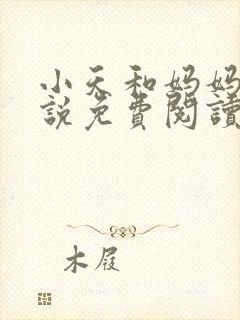 小天和妈妈
說免費閱讀
木屐